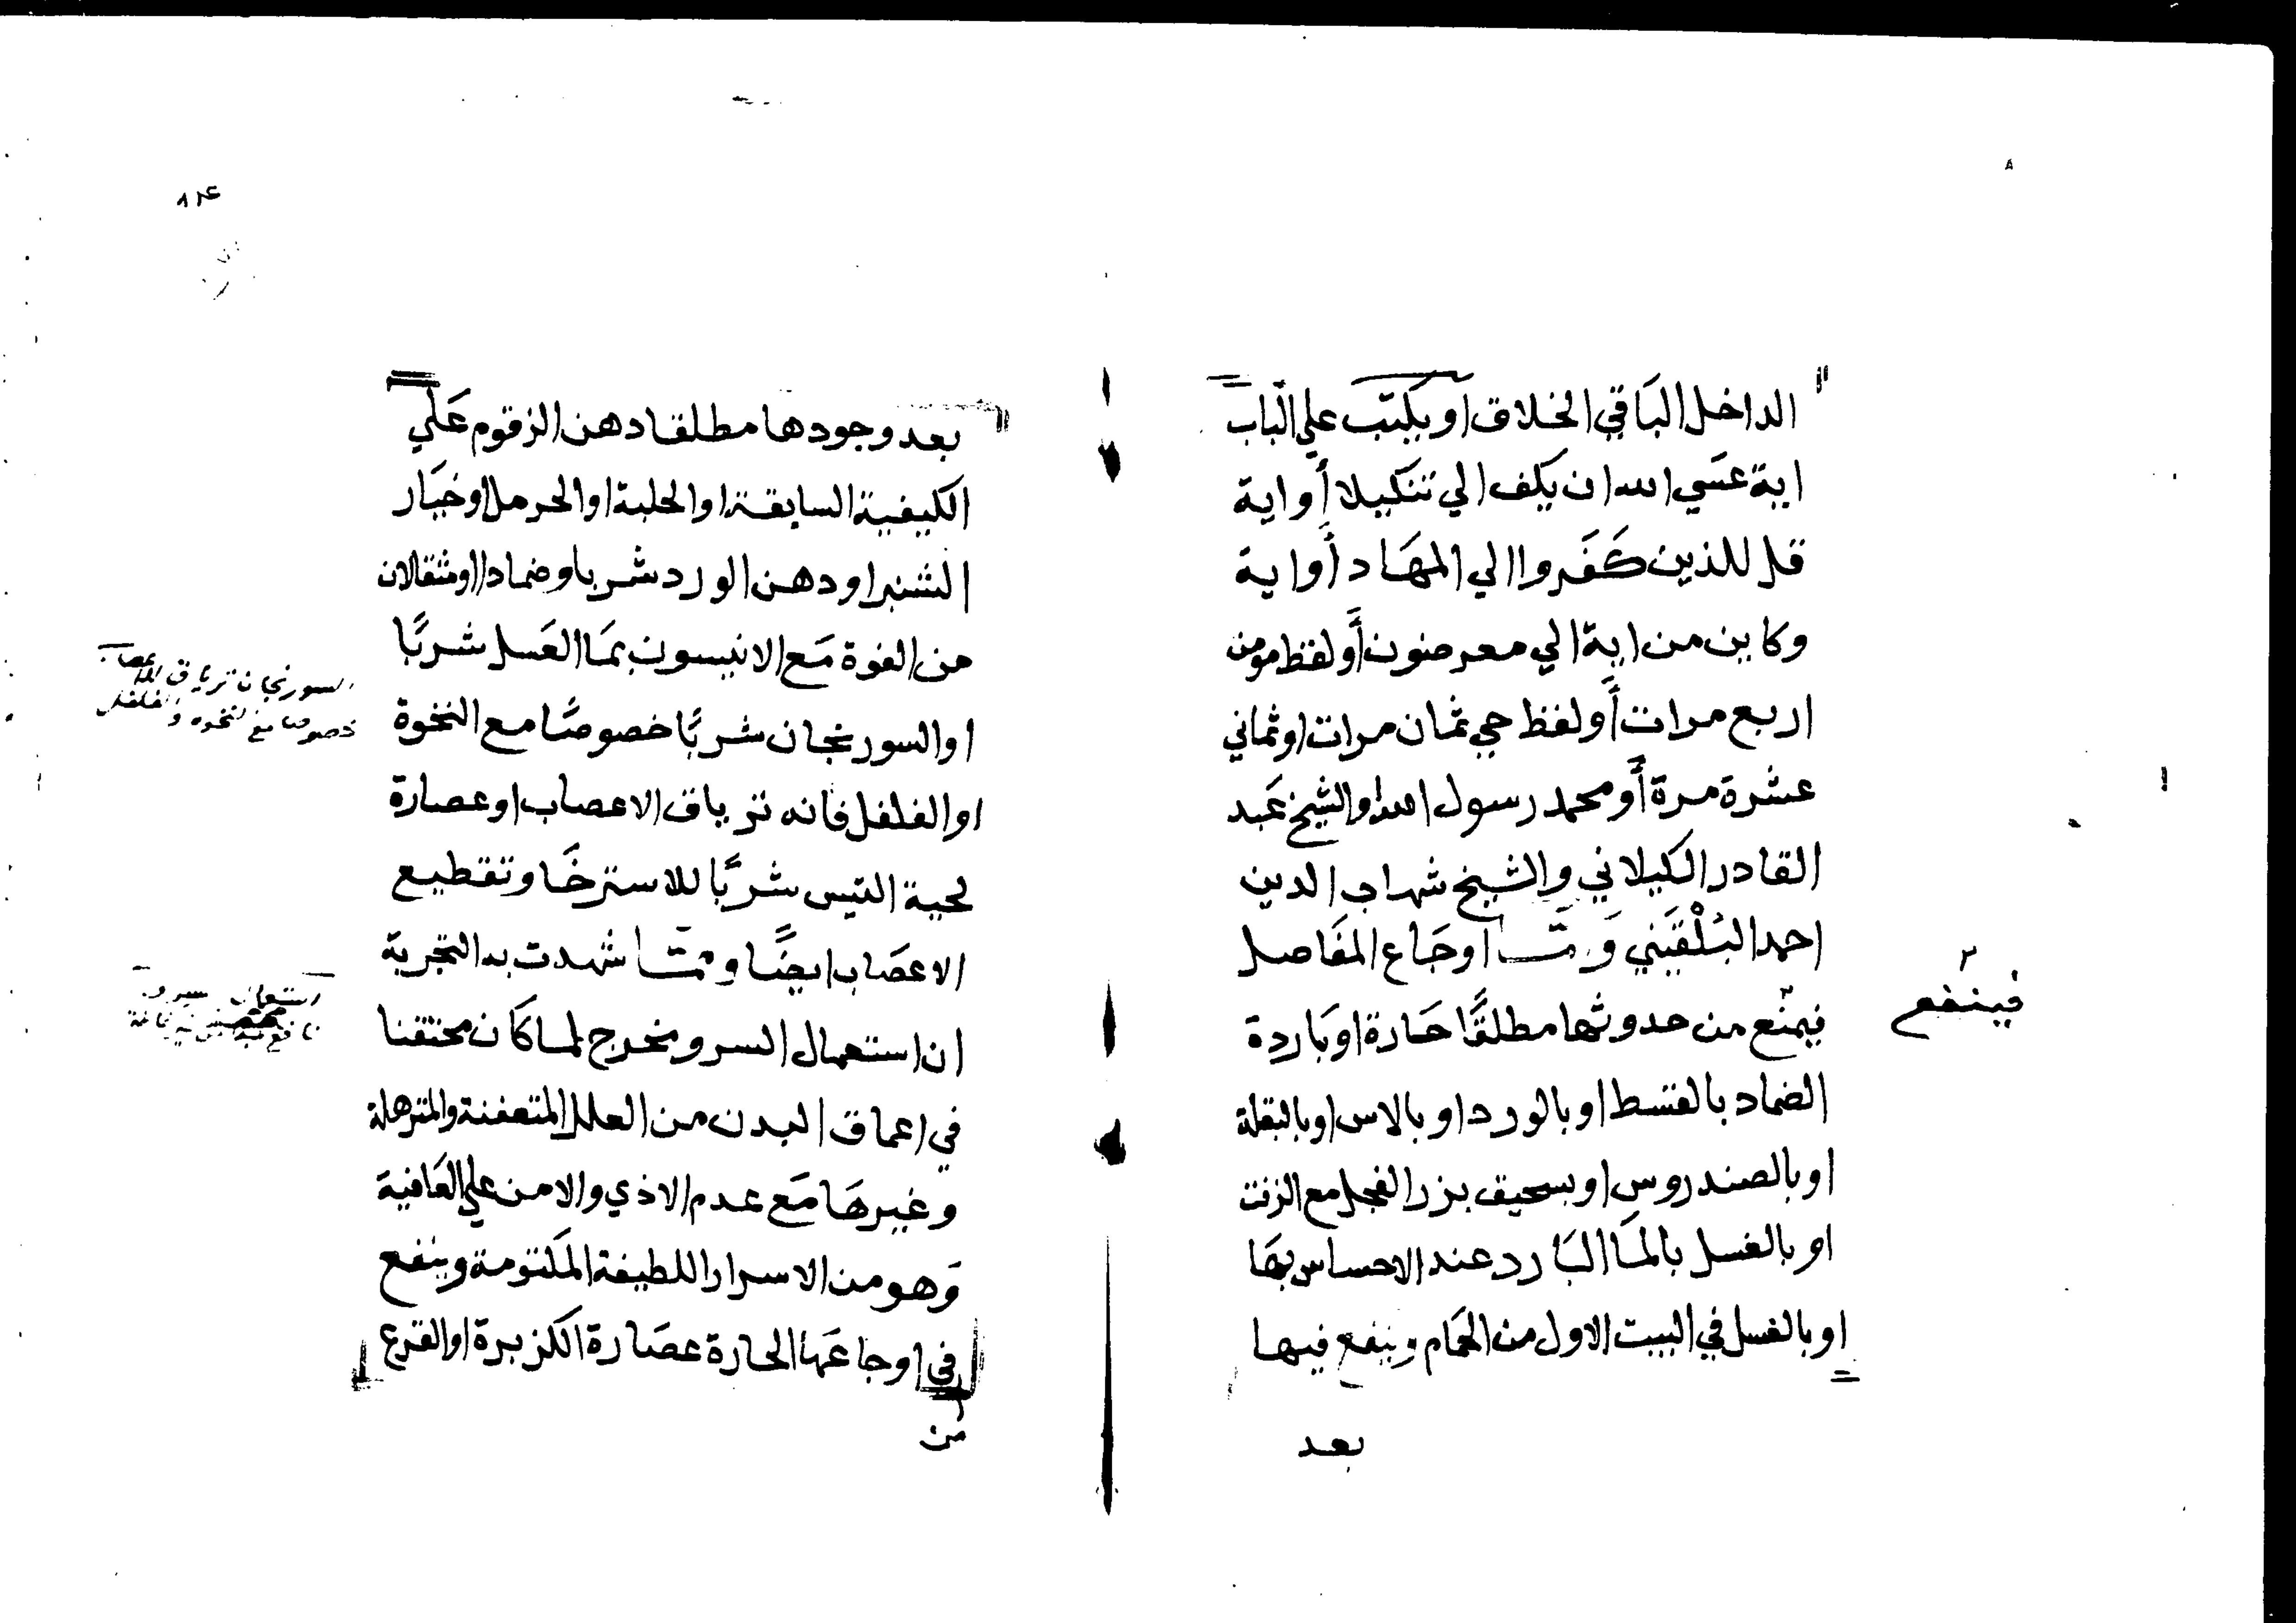 الداخل الباقي الخلاق او يكتب علي الباب
اية عسي الله ان يكف الي تنكيلا أو اية
قل للذين كفروا الي المهاد أو اية
وكاين من اية الي معرضون أو لفظ مومن
اربع مرات أو لفظ حي ثمان مرات او ثماني
عشرة مرة أو محمد رسول الله والشيخ عبد
القادر الكيلاني والشيخ شهاب الدين
احمد البلقيني وما اوجاع المفاصل
فيمنع من حدوثها مطلقا حارة او باردة
فينفع
الضماد بالقسط او بالورد او بالاس او بالبقلة
او بالصندروس او بسحيق بزر الفجل مع الزفت
او بالغسل بالما البارد عند الاحساس بها
او بالغسل في البيت الاول من الحمام وينفع فيها
بعد
بعد وجودها مطلقا دهن الزقوم علي
الكيفية السابقة او الحلبة او الحرمل او خيار
الشنبر او دهن الورد شربا وضمادا او مثقالان
من الفوة مع الانيسون بما العسل شربًا
او السورنجان شربًا خصوصًا مع النخوة
او الفلفل فانه ترياق الاعصاب او عصارة
لحية التيس شربًا للاسترخا وتقطيع
الاعصاب ايضًا ومما شهدت به التجربة
ان استعمال السرو مخرج لما كان محتقنا
في اعماق البدن من العلل المتعفنة والمترهلة
وغيرها مع عدم الاذي والامن علي العافية
وهو من الاسرار اللطيفة المكتومة وينفع
في اوجاعها الحارة عصارة الكزبرة او القرع
من
السورنجان ترياق الاعصاب
خصوصا مع النخوه والفلفل
استعمال السرو